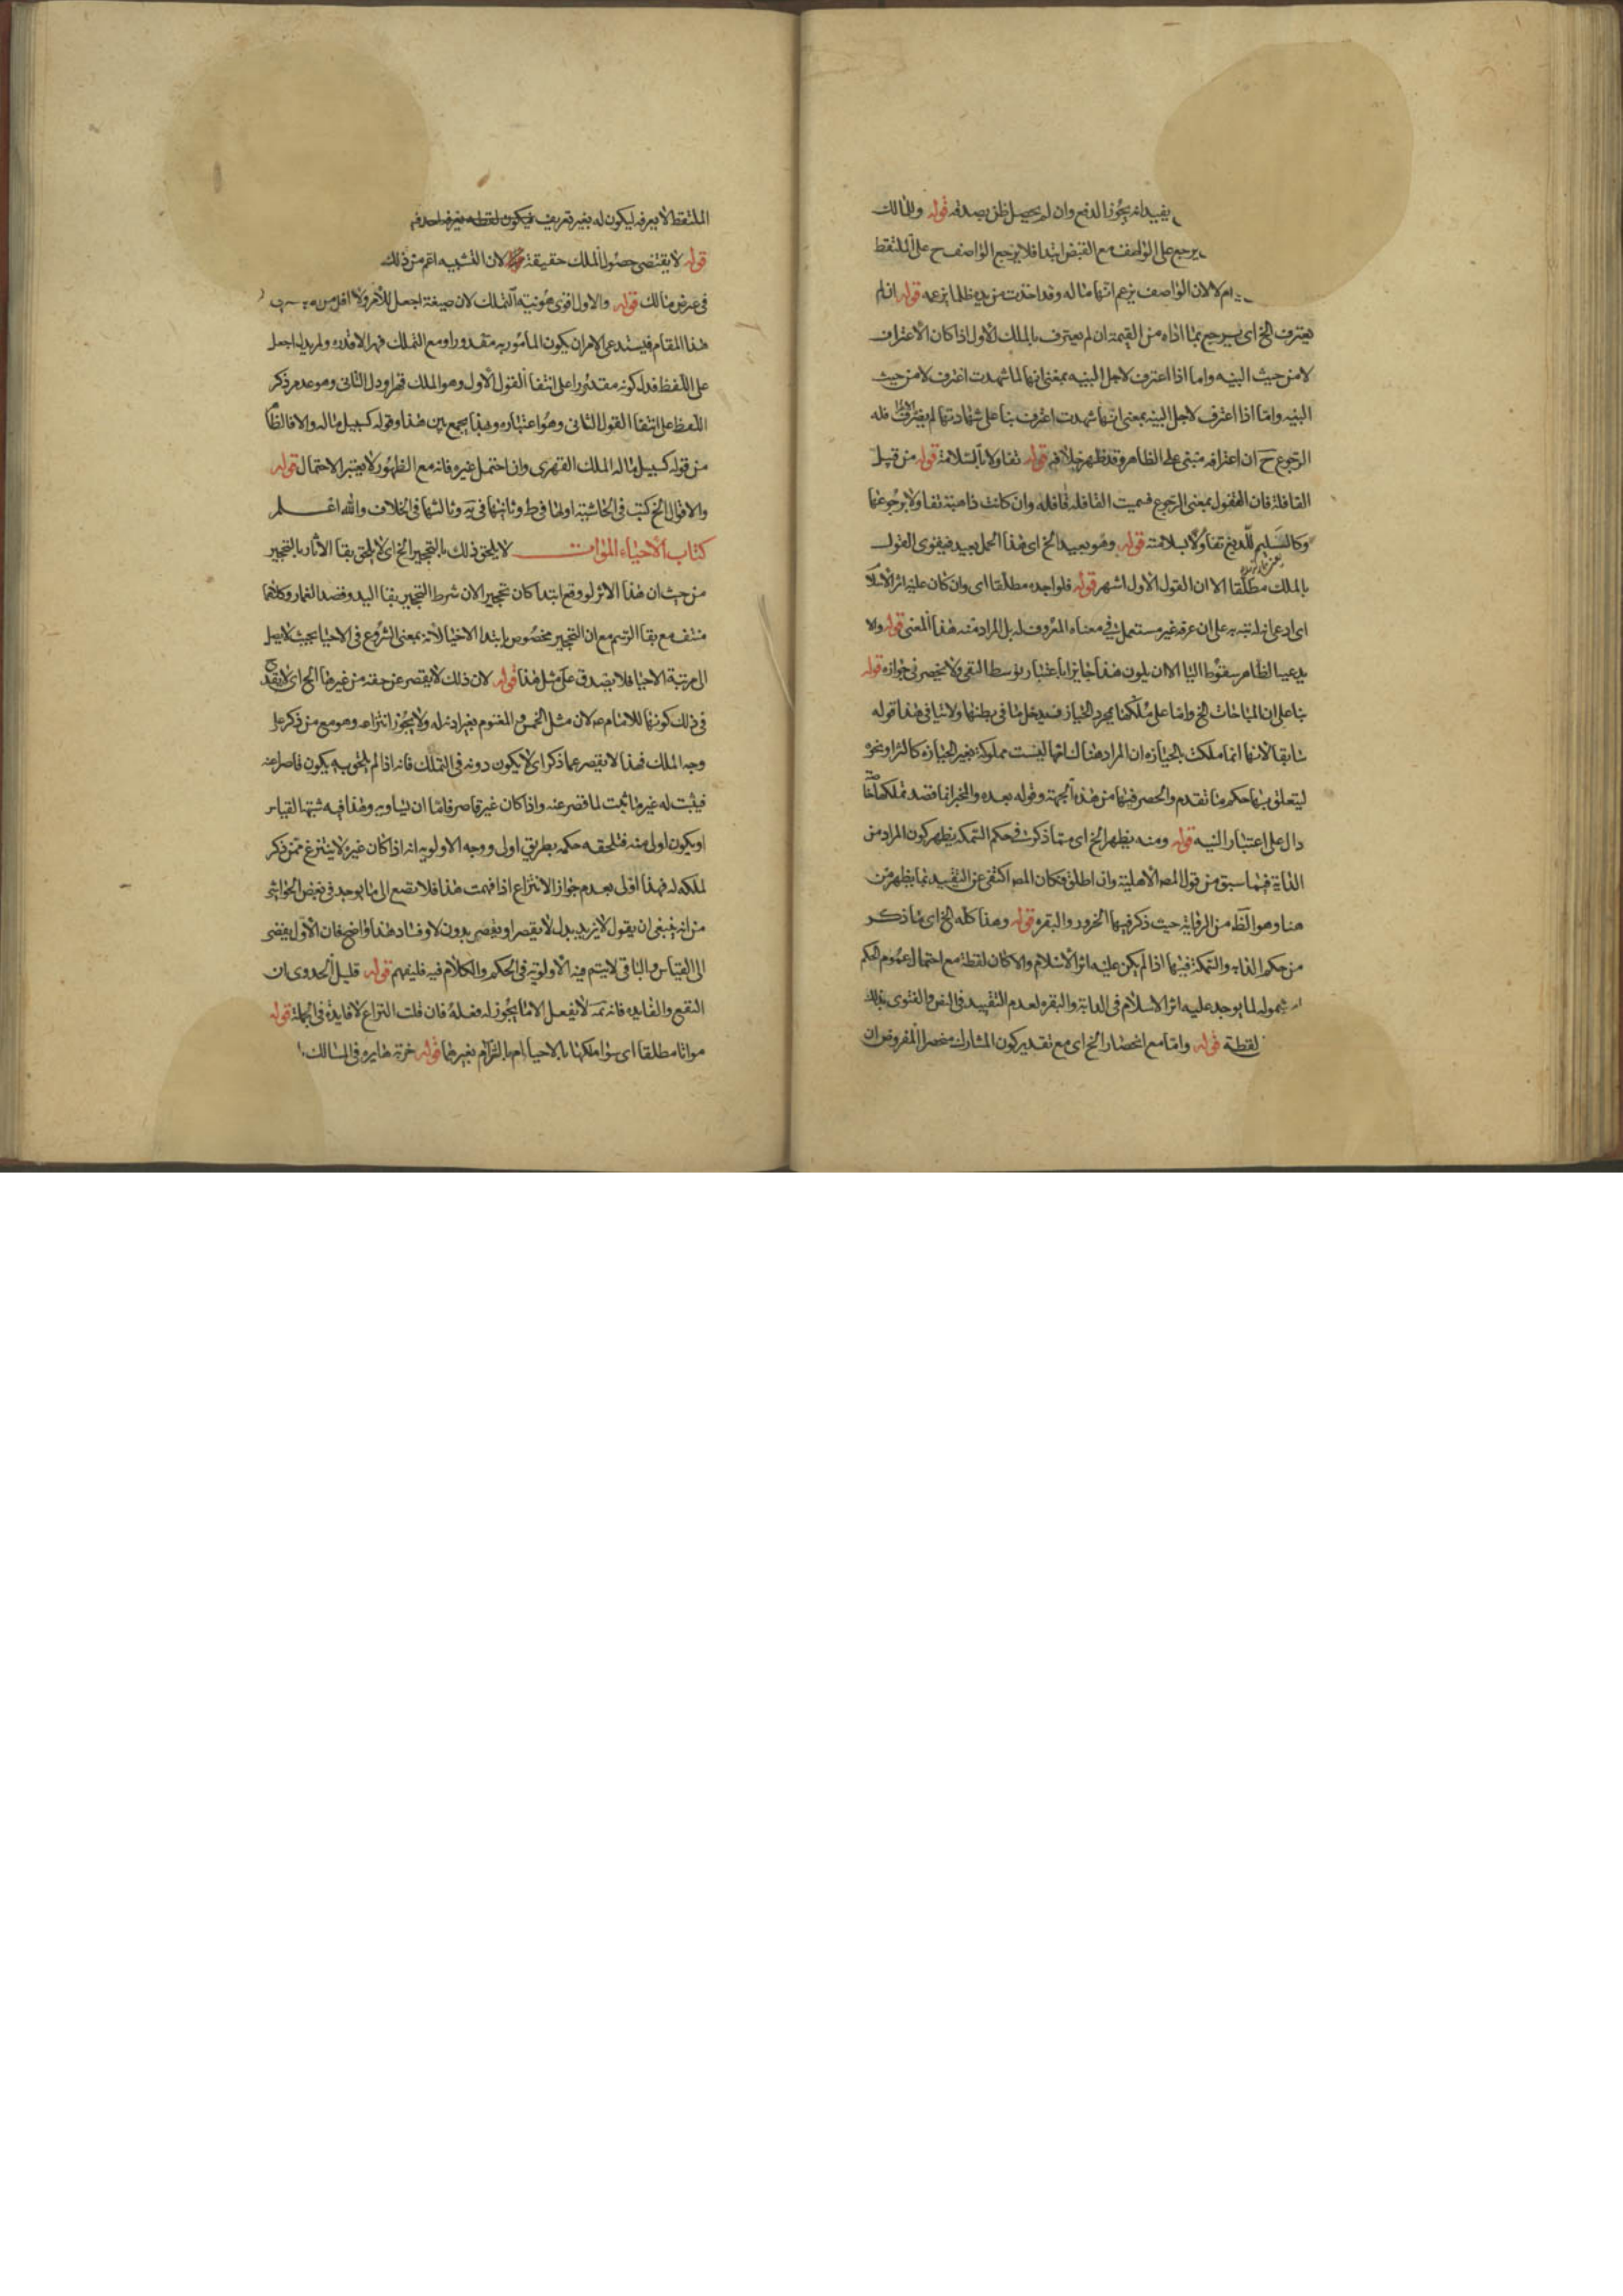 يفيد انه يجوز الدفع وان لم يحصل ظن بصدقه قوله والمالك
يرجع على الواصف مع القبض ابتدا فلا يرجع الواصف ح على الملتقط
ام لا لان الواصف يزعم انها ماله وقد اخذت من يده ظلما بزعمه قوله ان لم
يعترف الخ اي يرجع بما اداه من القيمة ان لم يعترف بالملك لاول اذا كان الاعتراف
لا من حيث البينه واما اذا اعترف لاجل البينه بمعنى انها لما شهدت اعترف لا من حيث
البينه واما اذا اعترف لاجل البينه بمعنى انها شهدت اعترف بنا على شهادتها لم يعترف فله
الرجوع ح ان اعترافه مبني على الظاهر وقد ظهر خلافه قوله تفاولا بالسلامة قوله من قبيل
القافلة فان القفول بمعنى الرجوع فسميت القافله قافله وان كانت ذاهبة تفاولا برجوعها
وكالسليم للديغ تفاولا بسلامته قوله وهو بعيد الخ اي هذا الحمل بعيد فيقوى القول
بالملك مطلقا الا ان القول الاول اشهر قوله فلواجده مطلقا اي وان كان عليه اثر الاسلام
اي ادعى انه لم تنبه به على ان عرفه غير مستعمل في معناه المعروف له بل المراد منه هذا المعنى قوله ولا
يدعيه الظاهر سقوط اليا الا ان يكون هذا جايزا باعتبار توسط النفي ولا يحضرني جوازه قوله
بنا على ان المباحات الخ واما على ملكها بمجرد الحيازة فيدخل ما في بطنها ولا ينافي هذا قوله
سابقا لانها انما ملكت بالحيازه ان المراد هناك انها ليست مملوكة بغير الحيازه كالشرا ونحوه
ليتعلق بها حكم ما تقدم والحصر فيها من هذه الجهة وقوله بعده والمخبر انما قصد تملكها خاصة
دال على اعتبار النيه قوله ومنه يظهر الخ اي مما ذكرت في حكم السمكه يظهر كون المراد من
الدابة فيما سبق من قول المص الاهلية وان اطلق فكان المص اكتفى عن التقييد بما يظهر من
هنا وهو الظ من الرواية حيث ذكر فيها الجزور والبقره قوله وهذا كله الخ اي ما ذكر
من حكم الدابه والسمكة فيها اذا لم يكن عليه اثر الاسلام والا كان لقطة مع احتمال عموم الحكم
شموله لما يوجد عليه اثر الاسلام في الدابة والبقره لعدم التقييد في النص والفتوى بذلك
لقطة قوله واما مع انحصار الخ اي مع تقدير كون المشارك منحصرا المفروض ان
الملتقط لا يعرفه ليكون له بغير تعريف فيكون لقطه يعرف احدهم
قوله لا يقتضي حصول الملك حقيقة لان التشبيه اعم من ذلك
في عرض مالك قوله والاول اقوى هو نية التملك لان صيغة اجعل للامر ولا اقل من
هذا المقام فيستدعي الامر ان يكون المامور به مقدورا ومع التملك قهرا لا قدره ولم يدل اجعل
على اللفظ فدل كونه مقدورا على انتفا القول الاول وهو الملك قهرا ودل الثاني وهو عدم ذكر
اللفظ على انتفا القول الثاني وهو اعتباره وبهذا يجمع بين هذا وقوله كسبيل ماله والا فالظاهر
من قوله كسبيل ماله الملك القهري وان احتمل غيره فانه مع الظهور لا يعتبر الاحتمال قوله
والاقوال الخ كتب في الحاشية اولها في ط وثانيها في يه وثالثها في الخلاف والله اعلم
كتاب الاحياء الموات لا يلحق ذلك بالتحجير الخ اي لا يلحق بقا الاثار بالتحجير
من حيث ان هذا الاثر لو وقع ابتدا كان تحجيرا لان شرط التحجير بقا اليد وقصد العمار وكلاهما
منتف مع بقا الرسم مع ان التحجير مخصوص بابتدا الاحيا لانه بمعنى الشروع في الاحيا بحيث لا يصل
الى مرتبة الاحيا فلا يصدق على مثل هذا قوله لان ذلك لا يقصر عن حقه من غيرها الخ اي لا يقدح
في ذلك كونها للامام ع لان مثل الخمس والمغنوم بغير اذنه له ولا يجوز انتزاعه وهو مع من ذكر على
وجه الملك فهذا لا يقصر عما ذكر اي لا يكون دونه في التملك فانه اذا لم يلحق به يكون قاصرا عنه
فيثبت له غير ما ثبت لما قصر عنه واذا كان غير قاصر فاما ان يساويه وهذا فيه شبهة القياس
او يكون اولى منه فتلحقه حكمه بطريق اولى ووجه الاولويه انه اذا كان غيره لا ينتزع ممن ذكر
لملكه له فهذا اولى بعدم جواز الانتزاع اذا فهمت هذا فلا تصغ الى ما يوجد في بعض الحواشي
من انه ينبغي ان يقول لا يزيد بدل لا يقصر او يقصر بدون لا وفساد هذا واضح فان الاول يفضي
الى القياس والباقي لا يتم فيه الاولوية في الحكم والكلام فيه فليفهم قوله قليل الجدوى ان
النفع والفايده فانه ثمة لا يفعل الا ما يجوز له فعله فان قلت النزاع لا فايدة في الجملة قوله
مواتا مطلقا اي سوا ملكها بالاحيا ام بالشرا ام بغيرهما قوله خربة دايره في المسالك